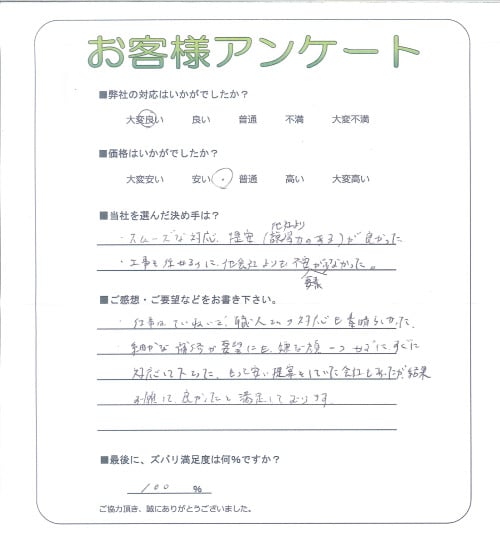 お客様アンケート
■弊社の対応はいかがでしたか？
大変良い 良い 普通 不満 大変不満
■価格はいかがでしたか？
大変安い 安い ・ 普通 高い 大変高い
■当社を選んだ決め手は？
他社より
・スムーズな対応、提案(説得力のある)が良かった
・工事を任せるのに、他会社よりも不安がなかった。
要素
■ご感想・ご要望などをお書き下さい。
・仕事はていねいで、職人さんの対応も素晴らしかた。
細かな 要望にも、嫌な顔一つせずに、すぐに
対応して下さった、もっと安い提案をしていた会社もあったが結果
お願いして良かったと満足しております。
■最後に、ズバリ満足度は何%ですか？
100 %
ご協力頂き、誠にありがとうございました。